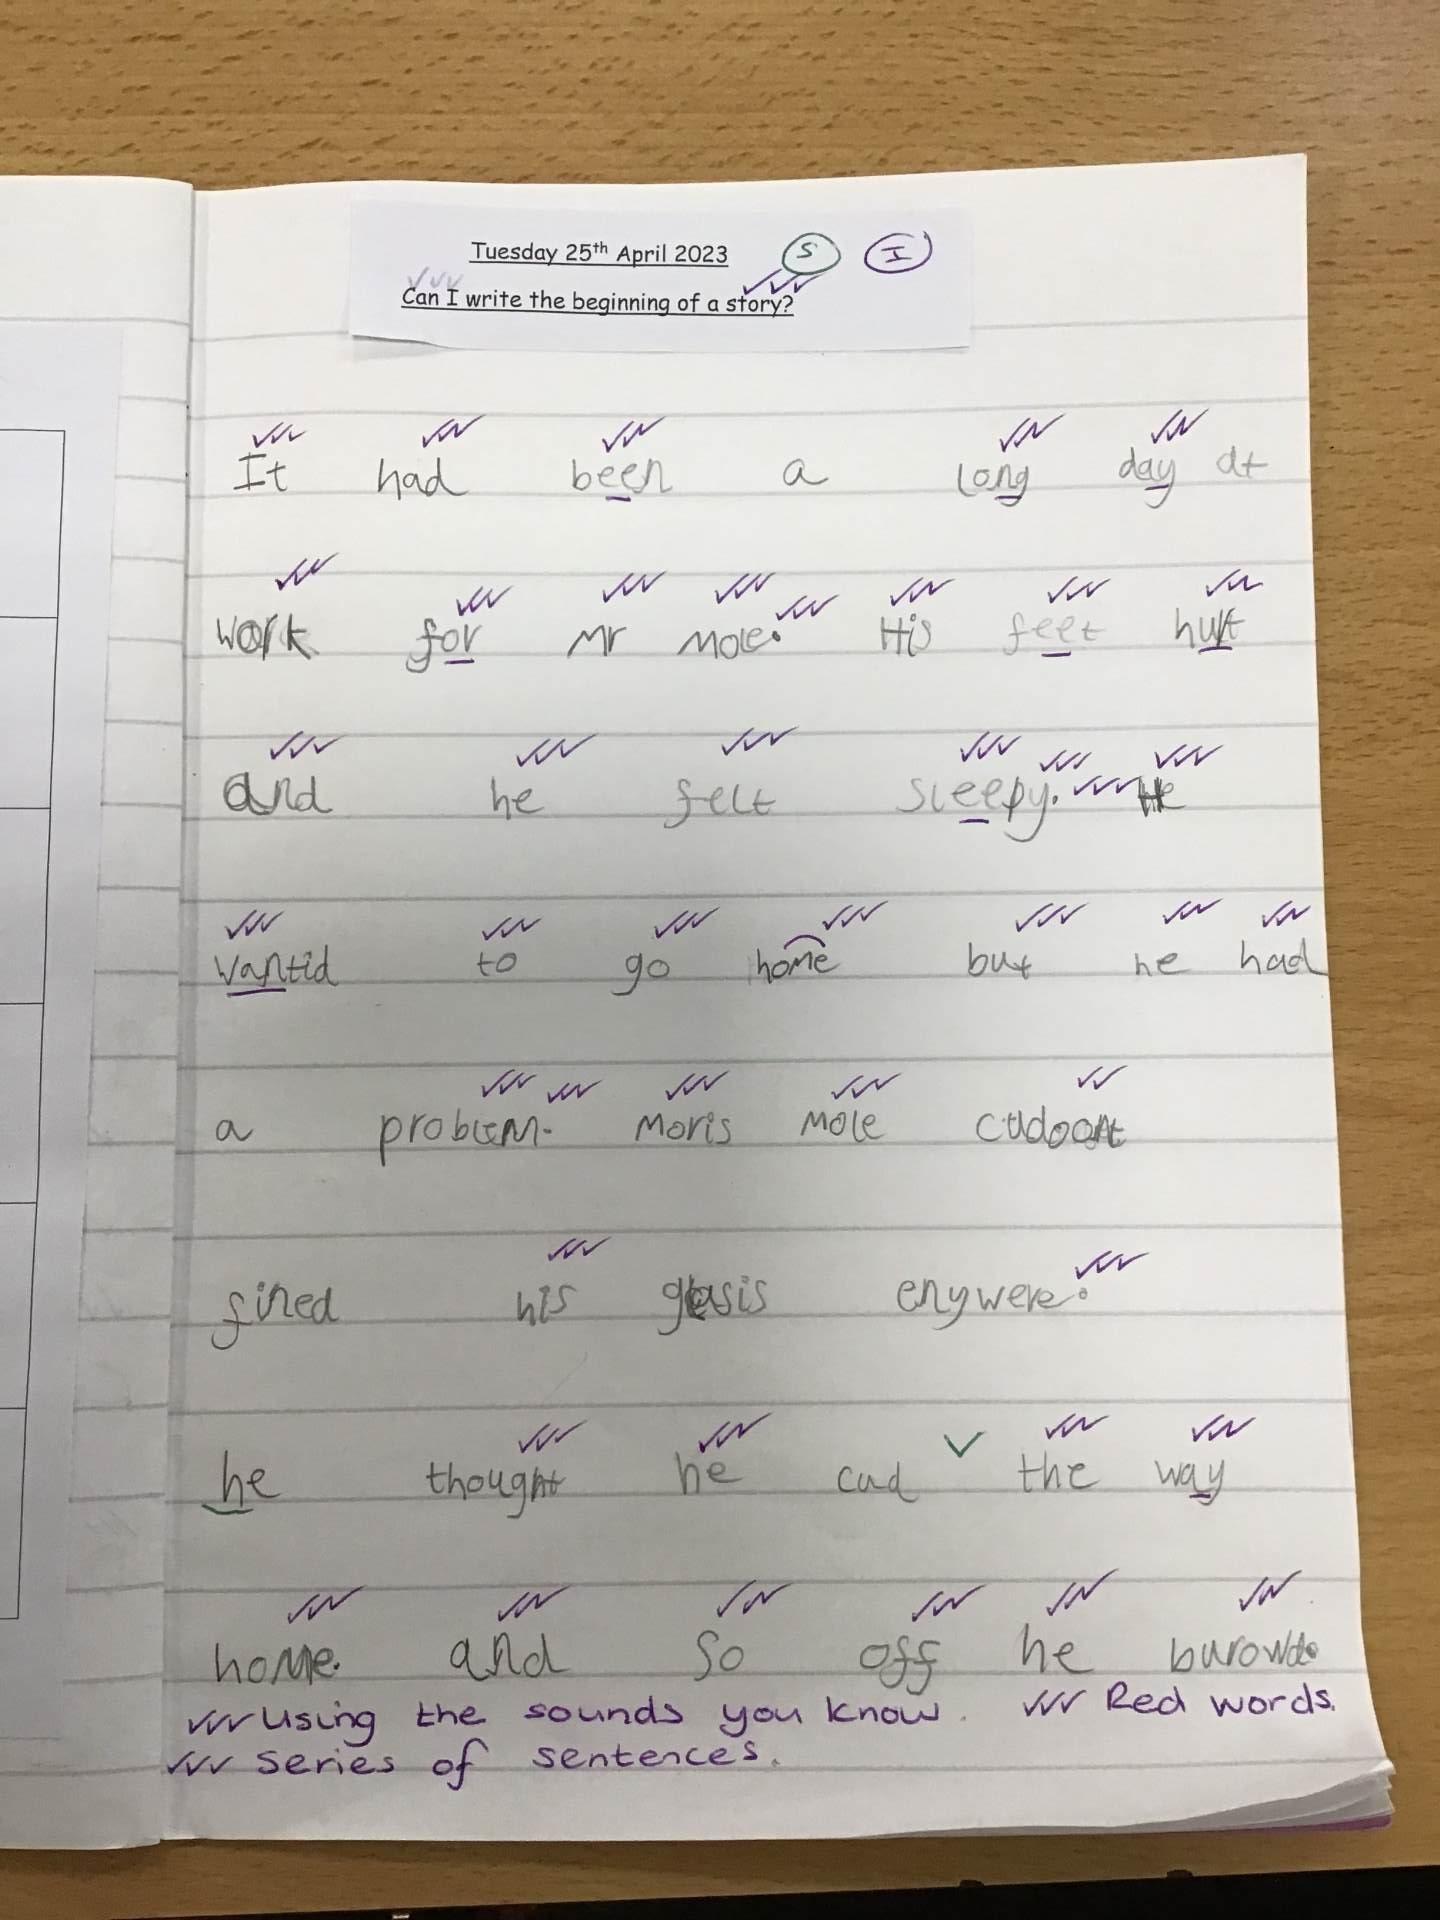 Tuesday 25th April 2023 S I
Can I write the beginning of a story?
It had been a long day at
work for Mr Mole. His feet hurt
and he felt sleepy. He
wantid to go home but he had
a problem. Moris Mole
fined his enywere.
he thought he cud the way
home. and so off he burowd.
Using the sounds you know. Red words.
Series of sentences.